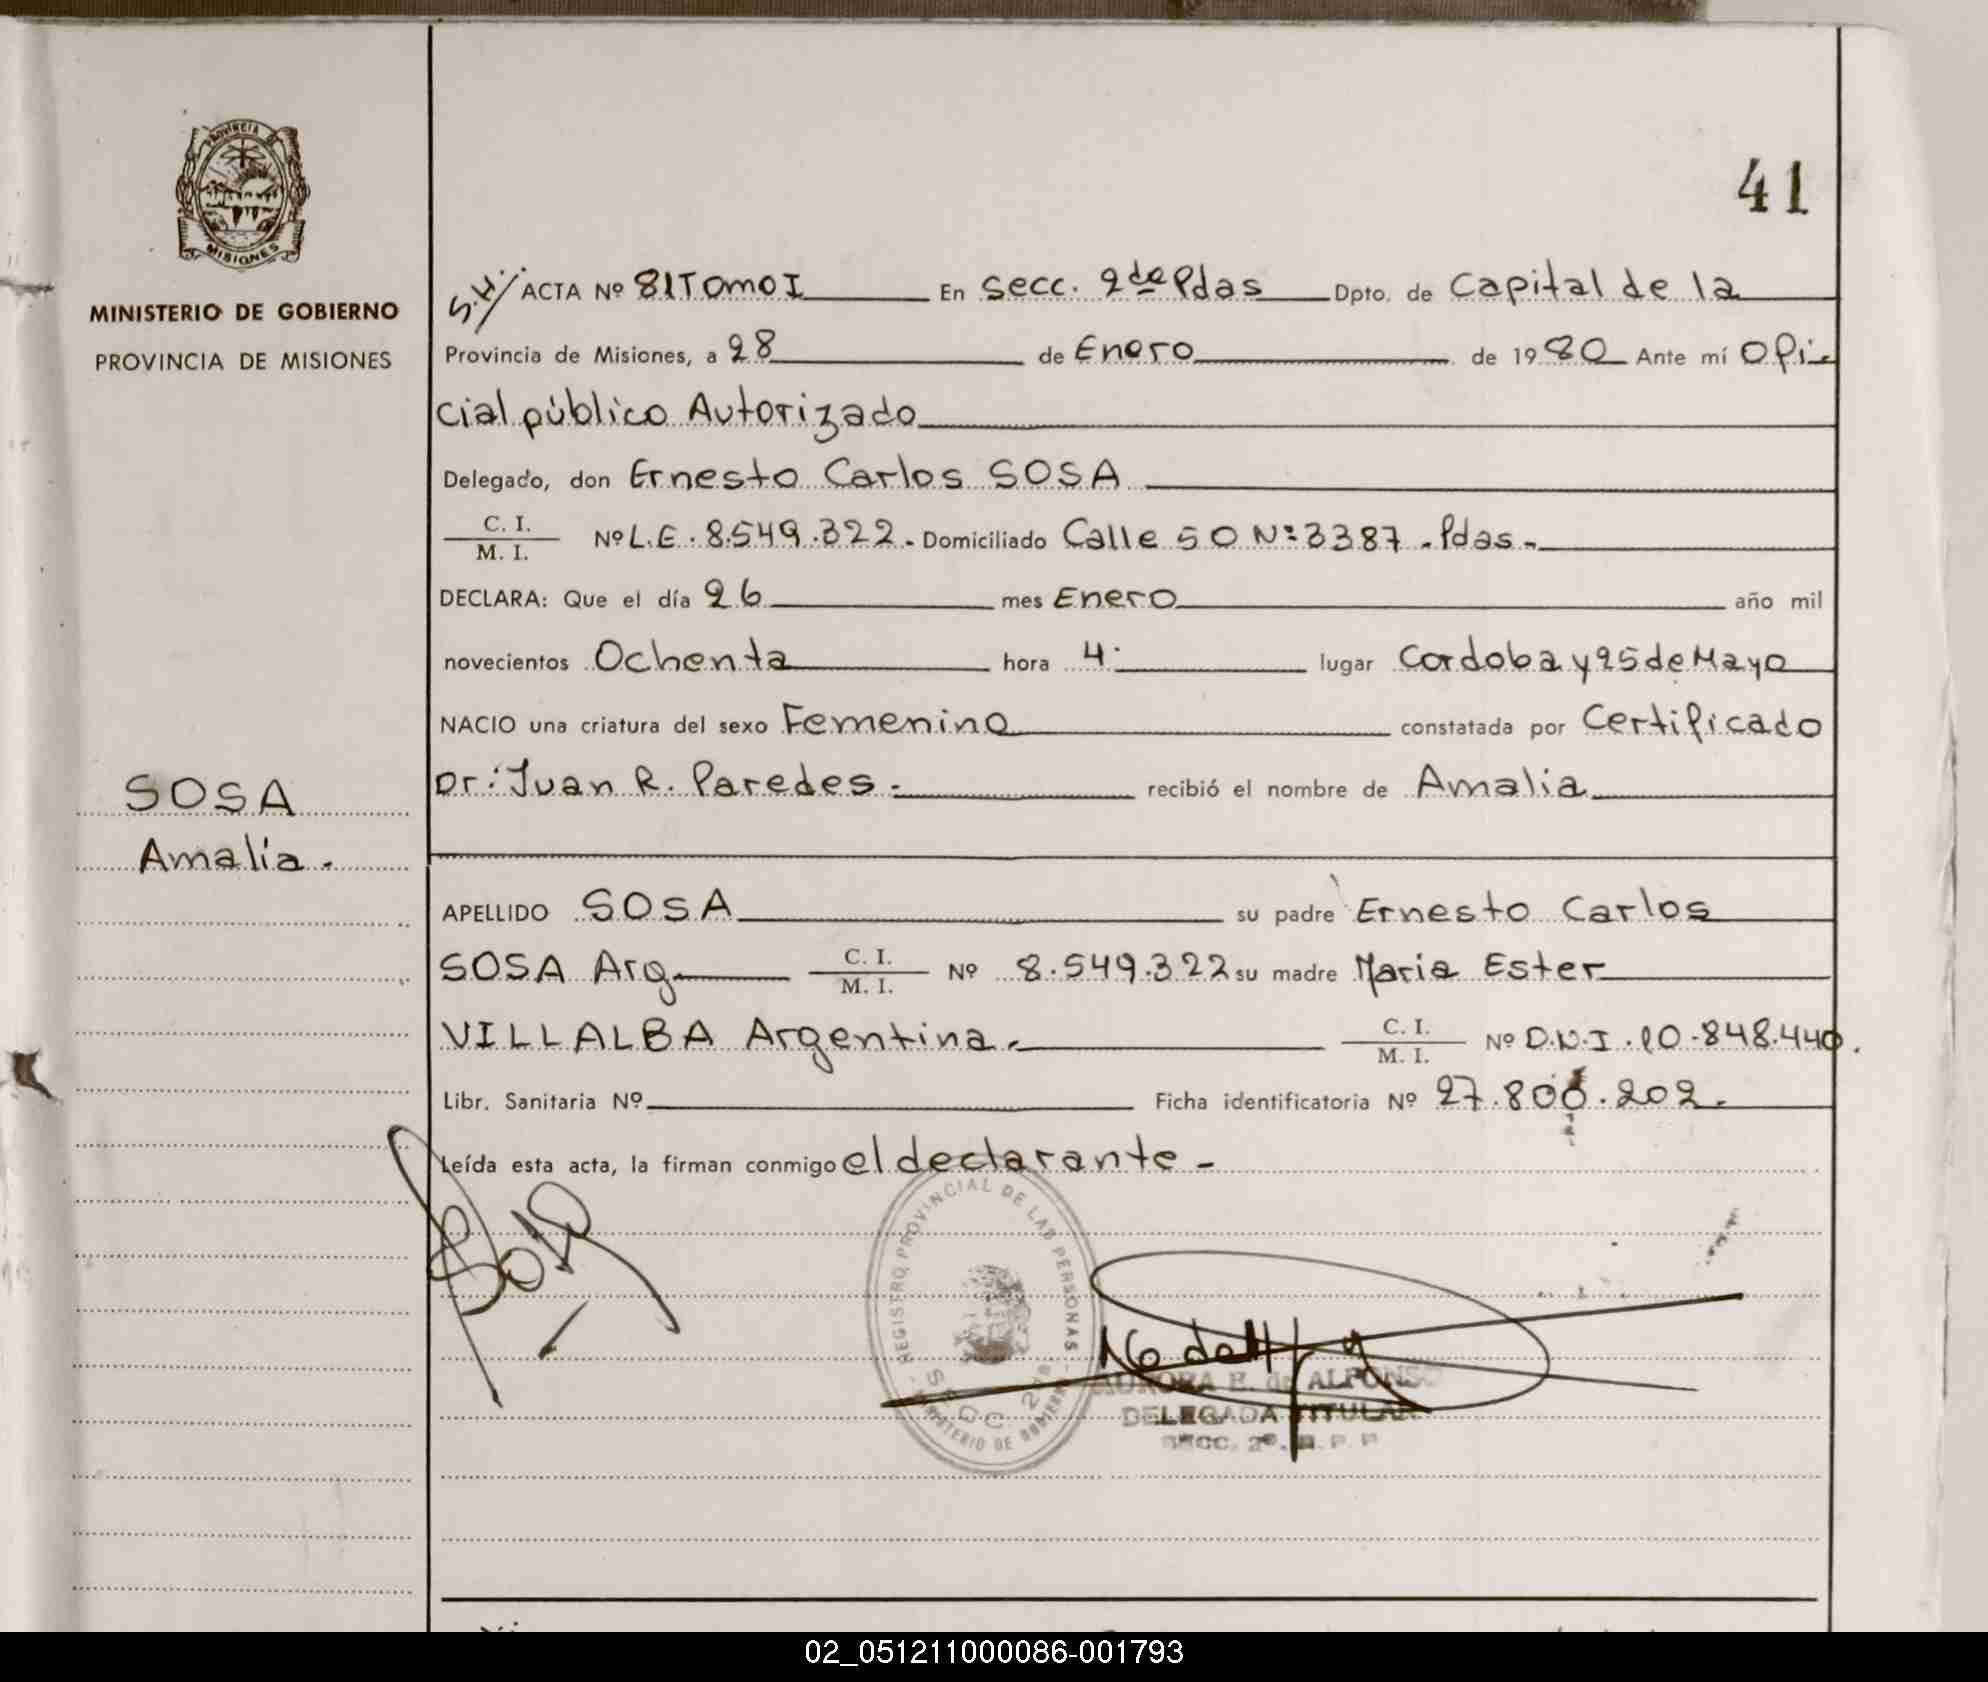 PROVINCIA DE
MISIONES
MINISTERIO DE GOBIERNO
PROVINCIA DE MISIONES
SOSA
Amalia.
41
ACTA Nº 81 Tomo I En Secc. 2da Pdas Dpto. de Capital de la
Provincia de Misiones, a 28 de Enero de 1980 Ante mí Ofi-
cial público Autorizado
Delegado, don Ernesto Carlos SOSA
C. I.
M. I. Nº L.E. 8.549.322. Domiciliado Calle 50 Nº 3387 - Pdas.
DECLARA: Que el día 26 mes Enero año mil
novecientos Ochenta hora 4. lugar Cordoba y 25 de Mayo
NACIO una criatura del sexo Femenino constatada por Certificado
Dr: Juan R. Paredes.- recibió el nombre de Amalia
APELLIDO SOSA su padre Ernesto Carlos
SOSA Arg. C. I. M. I. Nº 8.549.322 su madre Maria Ester
VILLALBA Argentina.- C. I. M. I. Nº D.N.I. 10.848.440.
Libr. Sanitaria Nº Ficha identificatoria Nº 27.800.202.
Leída esta acta, la firman conmigo el declarante -
Sosa
REGISTRO PROVINCIAL DE LAS PERSONAS
MINISTERIO DE GOBIERNO
AURORA E. de ALFONSO
DELEGADA TITULAR
SECC. 2ª. R. P. P.
02_051211000086-001793